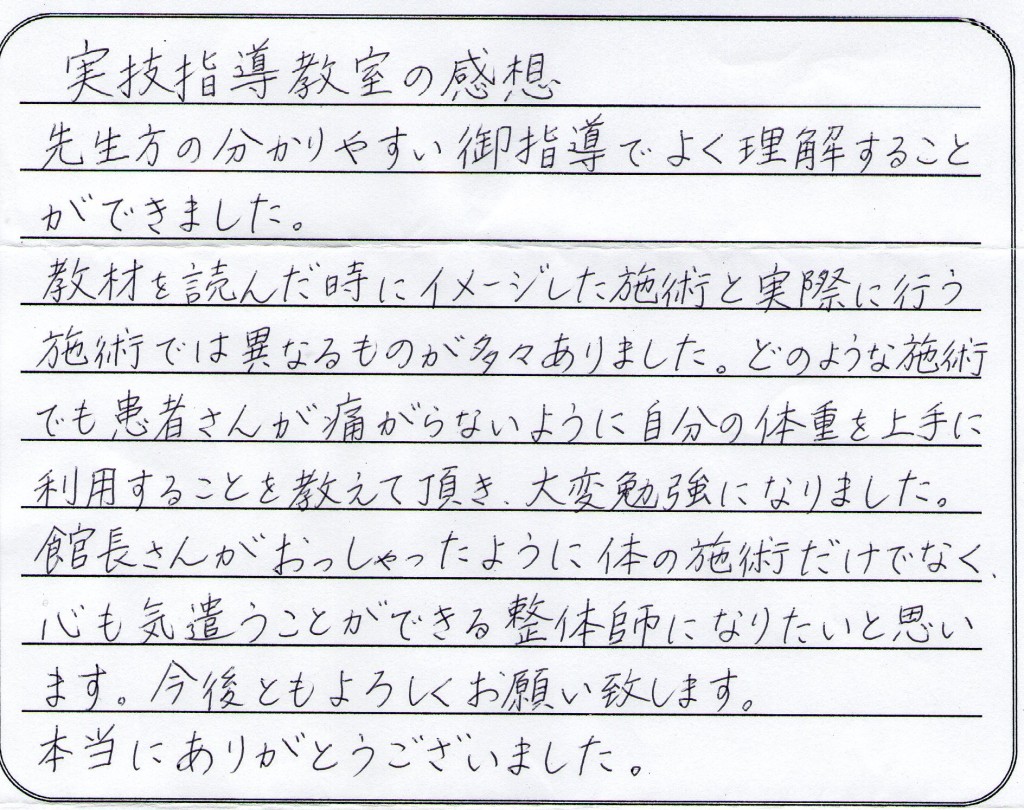 実技指導教室の感想
先生方の分かりやすい御指導でよく理解すること
ができました。
教材を読んだ時にイメージした施術と実際に行う
施術では異なるものが多々ありました。どのような施術
でも患者さんが痛がらないように自分の体重を上手に
利用することを教えて頂き、大変勉強になりました。
館長さんがおっしゃったように体の施術だけでなく、
心も気遣うことができる整体師になりたいと思い
ます。今後ともよろしくお願い致します。
本当にありがとうございました。